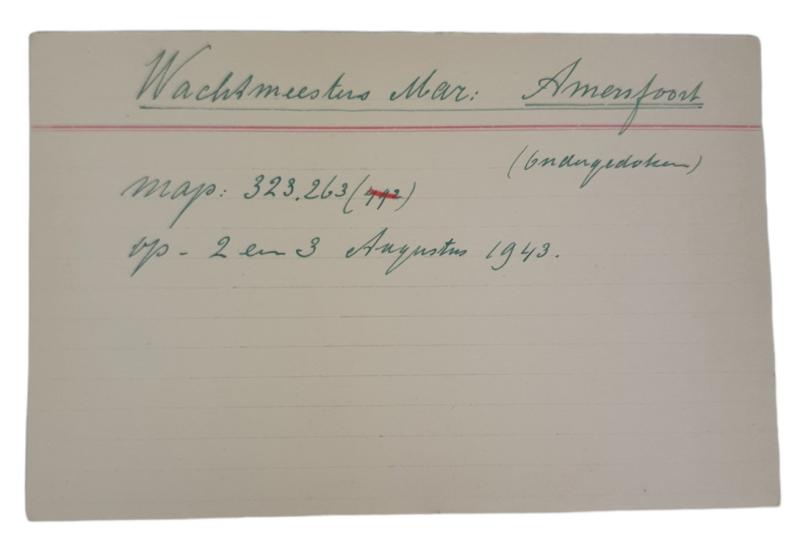 Wachtmeesters Mar: Amersfoort
(Ondergedoken)
map: 323.263 (
op - 2 en 3 Augustus 1943.